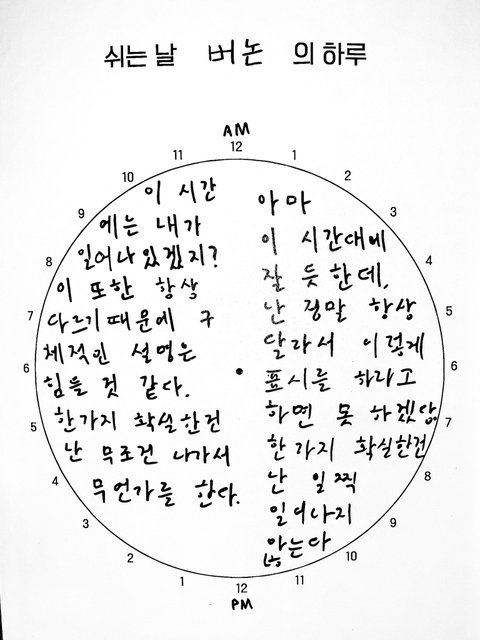 쉬는 날 버논 의 하루
AM
12
11
1
10
2
9
3
8
4
7
5
6
6
5
7
4
8
3
9
2
10
1
11
12
PM
아마
이 시간대에
잘 듯 한데,
난 정말 항상
달라서 이렇게
표시를 하라고
하면 못 하겠당.
한가지 확실한건
난 일찍
일어나지
않는다
이 시간
에는 내가
일어나 있겠지?
이 또한 항상
다르기 때문에 구
체적인 설명은
힘들 것 같다.
한가지 확실한건
난 무조건 나가서
무언가를 한다.